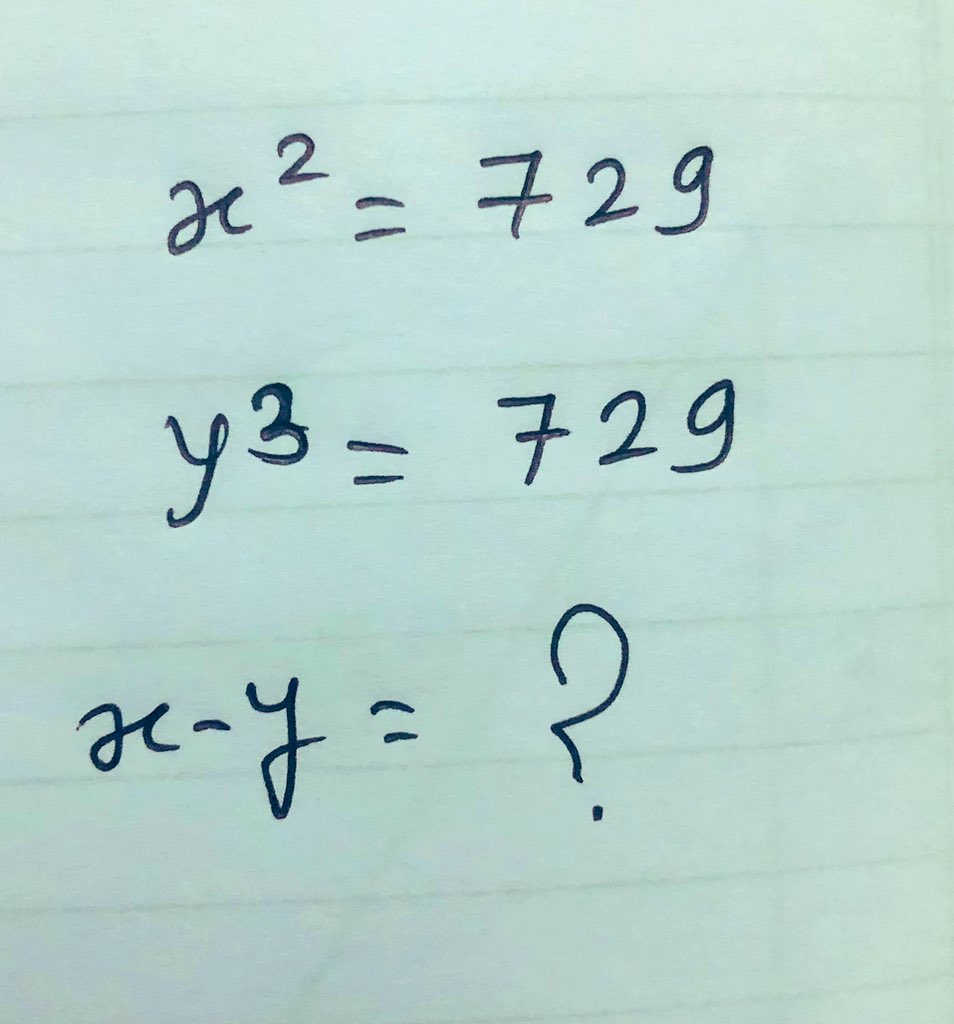 x² = 729
y³ = 729
x-y = ?